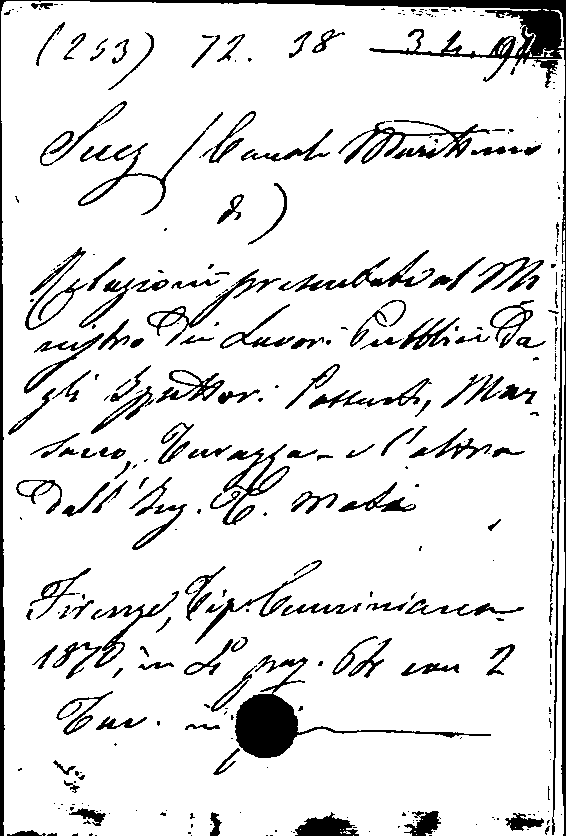 (253) 72. 38 3 4. 94
Suez (Canale Marittimo
di)
Relazioni presentate al Mi
nistro dei Lavori Pubblici da
gli Ispettori Possenti, Mar-
sano, Turazza - e l'altra
dall'Ing. T. Mati
Firenze, Tip. Cenniniana
1870, in 4° pag. 64 con 2
Tav. in